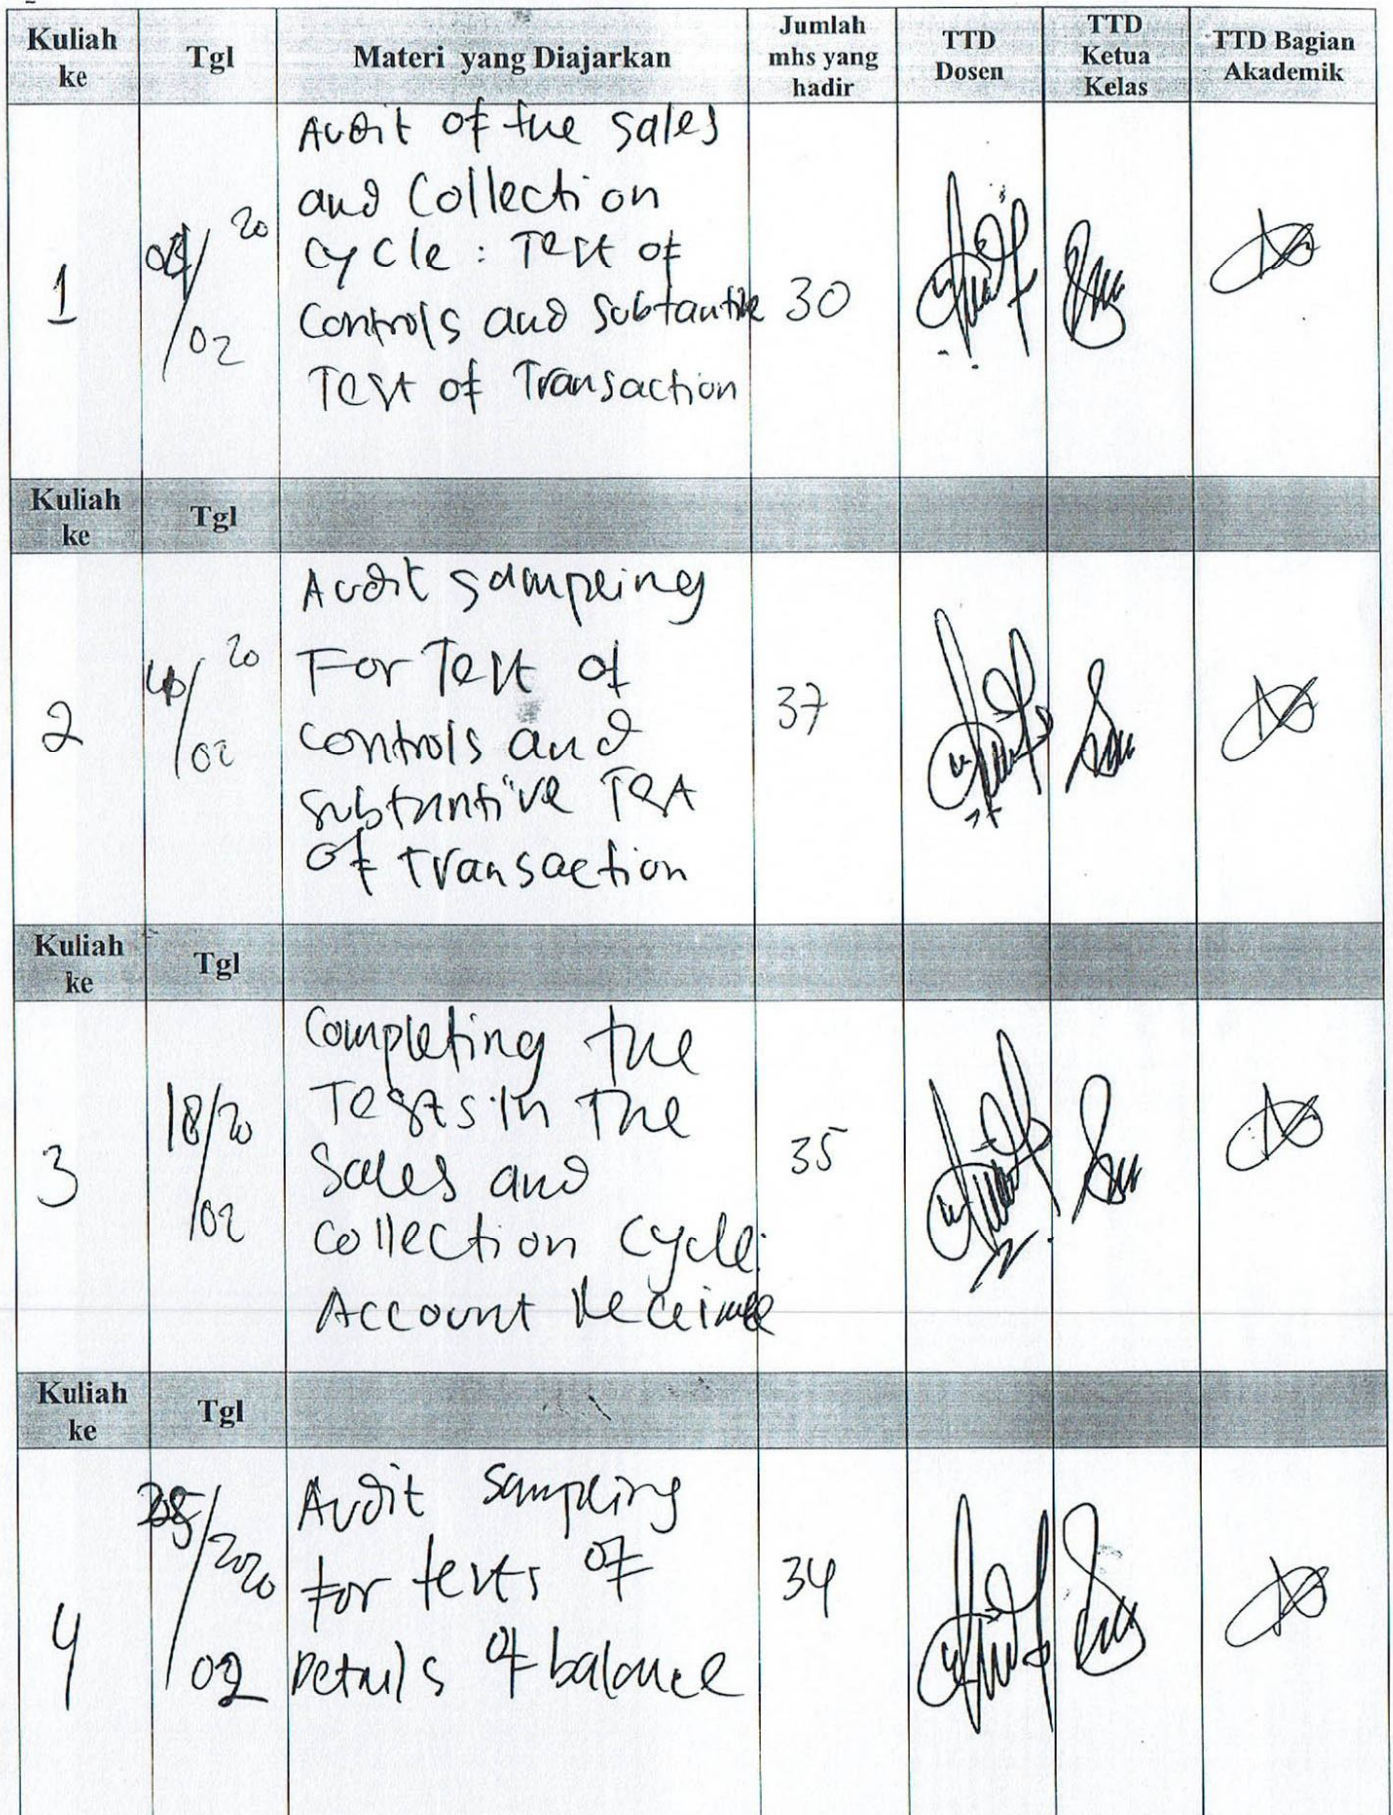 Kuliah ke Tgl Materi yang Diajarkan Jumlah mhs yang hadir TTD Dosen TTD Ketua Kelas TTD Bagian Akademik
Audit of the sales
and Collection
cycle : Test of
1 20 30
Controls and Subtantive
02
Test of Transaction
Kuliah ke Tgl
Audit sampling
20 For Test of
2 37
02 controls and
subtantive Test
of transaction
Kuliah ke Tgl
Completing the
18/20 Tests in the
3 35
02 Sales and
collection cycle:
Account Receivable
Kuliah ke Tgl
25/2020 Audit Sampling
for tests of 34
4 02 Details of balance